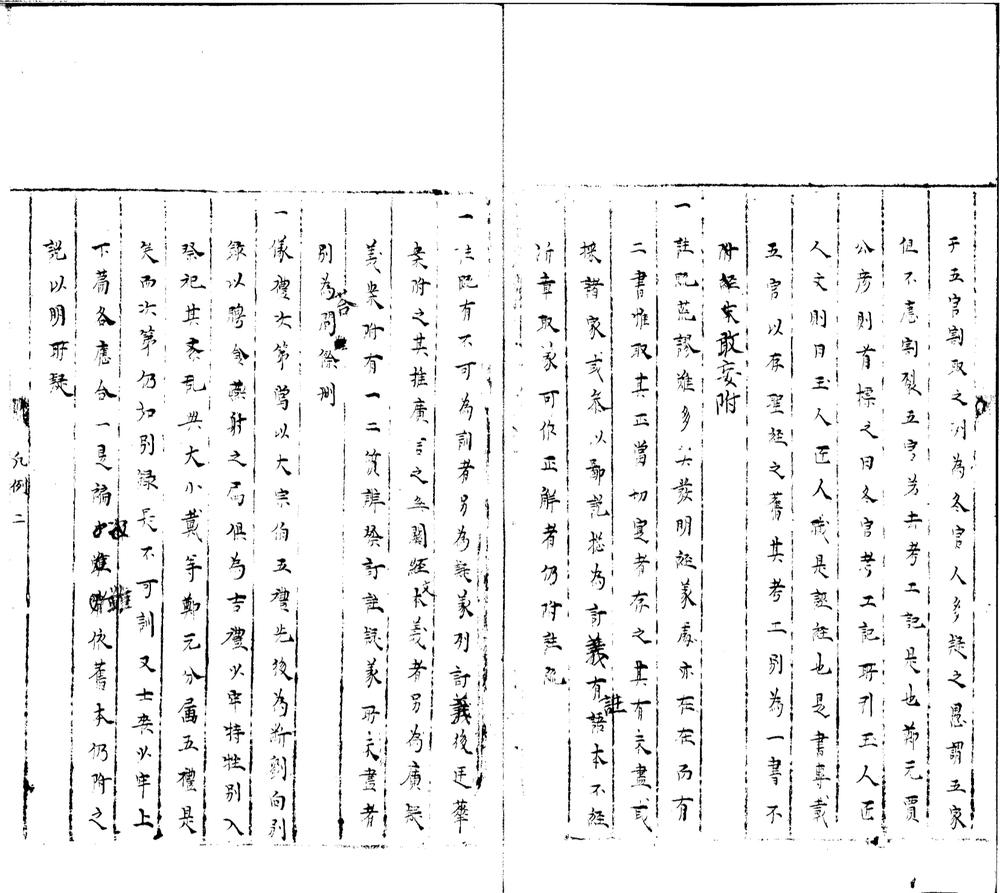 于五官割取之洲為冬官人多疑之愚謂五家
但不應割裂五官芳
考工記是也鄭元賈
公彥則首標之曰冬官考工記所引玉人匠
人文則曰玉人匠人職是誣經也是書專載
五官以存聖經之舊其考工別為一書不
附經末敢妄附
一註疏荒謬雖多其發明經義處亦在在而有
二書惟取其正當切實者存之其有未盡或
採諸家或參以鄙說揔為訂義有註語本不經
斷章取家可作正解者仍附註疏
一註疏有不可為訓者另為疑義列訂義後廷華
案附之其推廣言之無關經文本義者另為廣疑
義案附有一二質誰發訂註疑義所未盡者
別為問答條列
一儀禮次第當以大宗伯五禮先後為斷劉向別
錄以聘食燕射之屬俱為吉禮以牢特牲別入
祭祀其紊亂與大小戴等鄭元分屬五禮是
矣而次第仍如別錄長不可訓又士喪以牢上
下篇各應合一是編
雖
依舊本仍附之
說以明所疑
凡例二